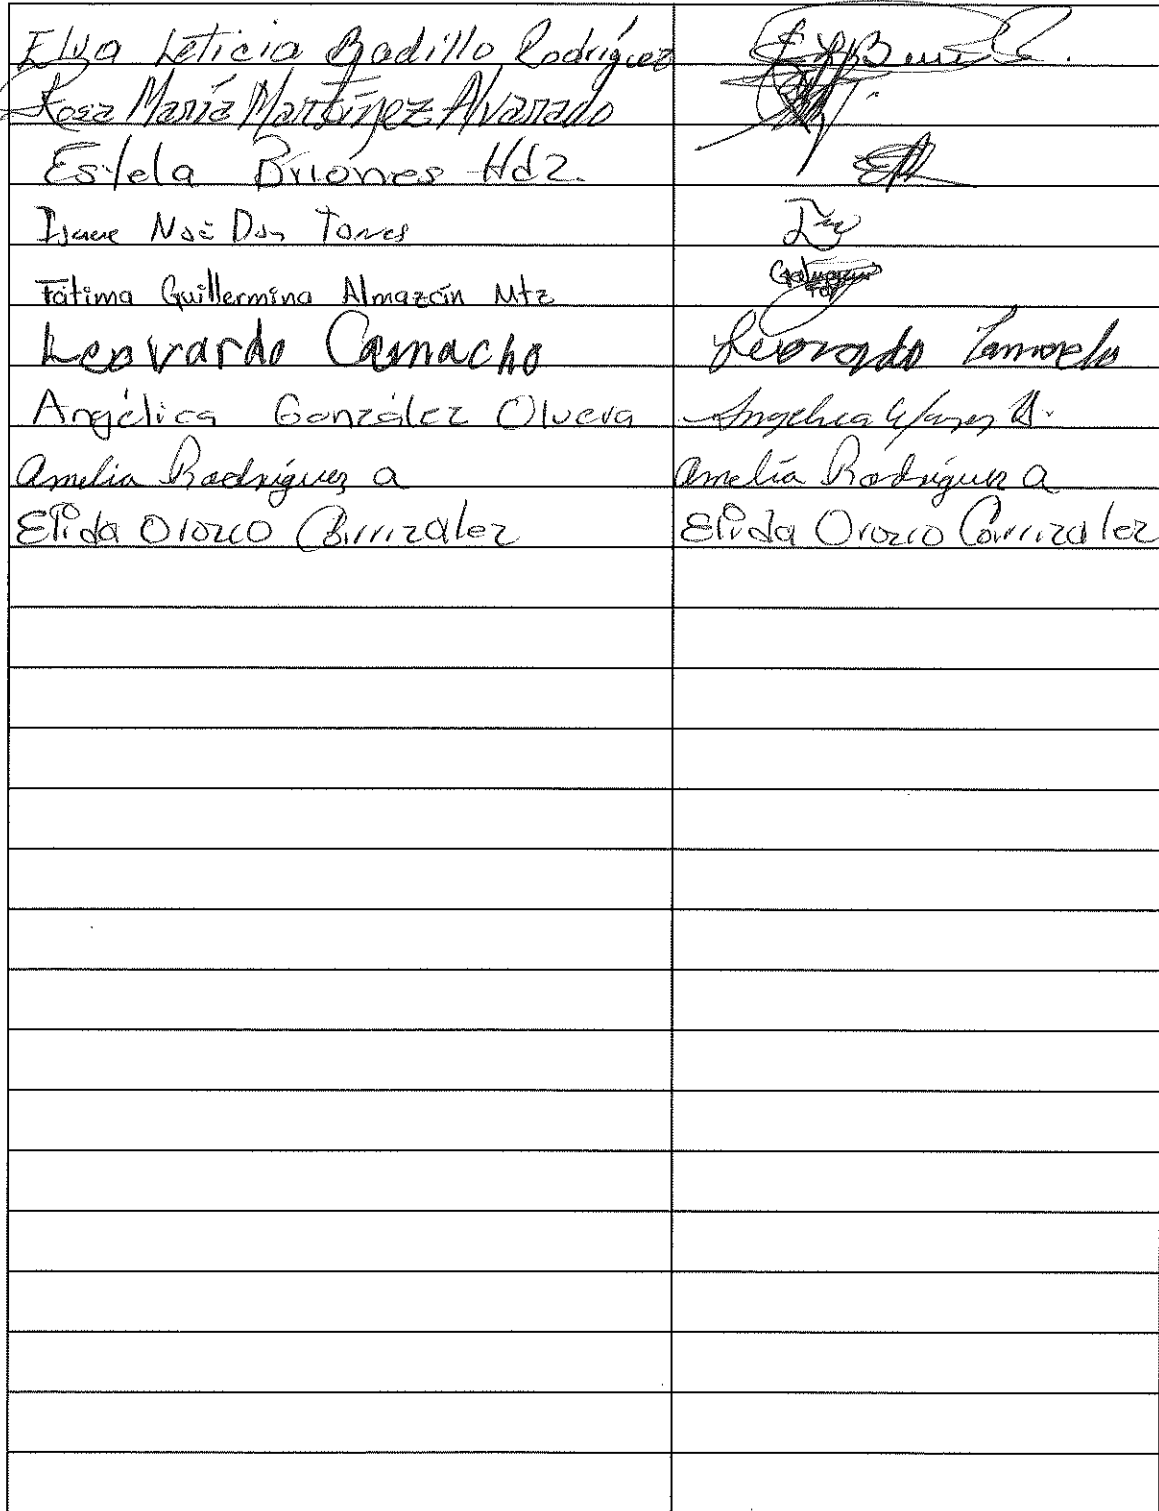 Elva Leticia Badillo Rodríguez
Rosa María Martínez Alvarado
Estela Briones Hdz.
Noé Torres
Fátima Guillermina Almazán Mtz
Leovardo Camacho Leovardo
Angélica González Olvera Angelica
Amelia Rodríguez a Amelia Rodríguez a
Elida Orozco Carrizalez Elida Orozco Carrizalez